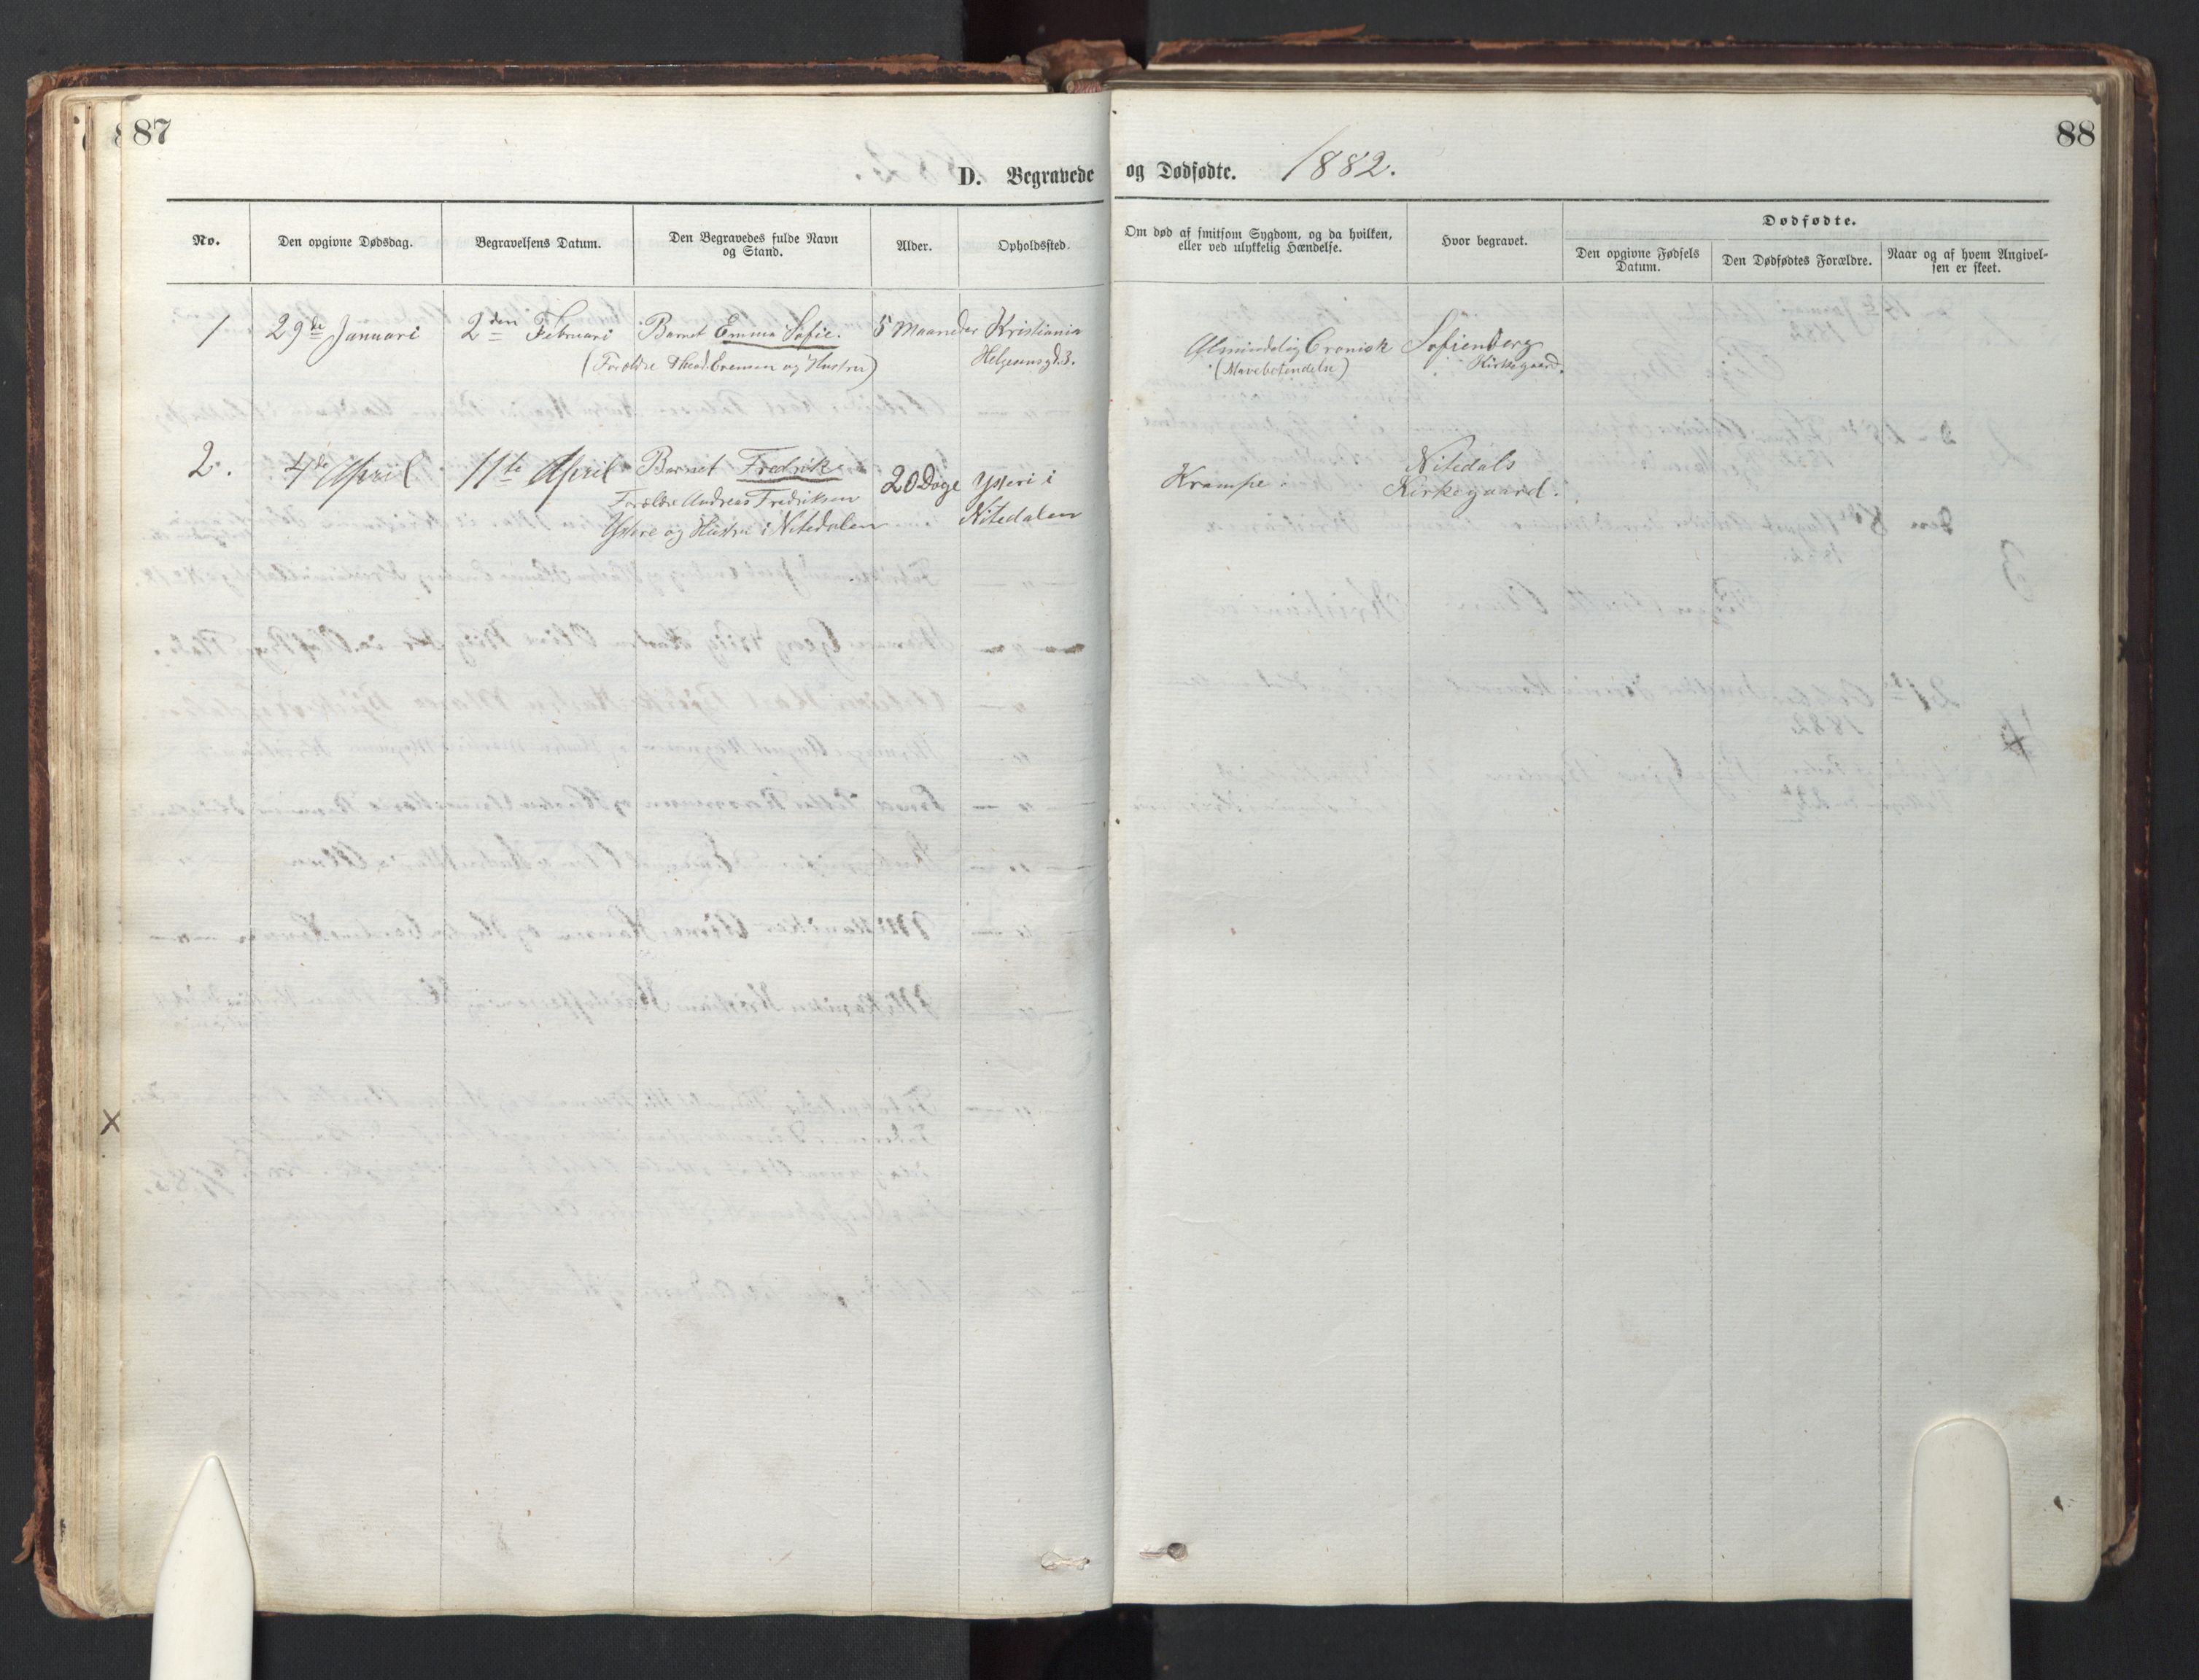 87
88
D. Begravede og Dødfødte. 1882.
No.
Den opgivne Dødsdag.
Begravelsens Datum.
Den Begravedes fulde Navn
og Stand.
Alder.
Opholdssted.
Om død af smitsom Sygdom, og da hvilken,
eller ved ulykkelig Hændelse.
Hvor begravet.
Dødfødte.
Den opgivne Fødsels
Datum.
Den Dødfødtes Forældre.
Naar og af hvem Angivel-
sen er skeet.
1 29de Januari 2den Februari Barnet Emma Sofie. 5 Maaneder Kristiania
(Foreldre Evensen og Hustru)
Helgesensgd. 3.
Almindelig Cronisk
(Mavebetendelse)
Sofienberg
Kirkegaard.
2. 4de April 11te April Barnet Fredrik
Foreldre Andreas Fredriksen
Ystere og Hustru i Nitedalen
20 Dage Ysteri i
Nitedalen
Krampe.
Nitedals
Kirkegaard.
X